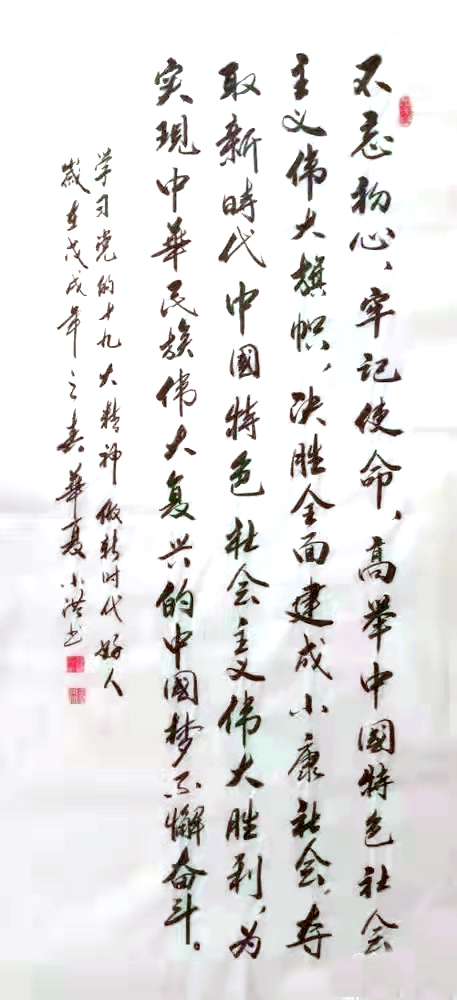 不忘初心、牢记使命，高举中國特色社会
主义伟大旗帜，决胜全面建成小康社会，夺
取新時代中國特色社会主义伟大胜利，为
实现中華民族伟大复兴的中國梦不懈奋斗。
学习党的十九大精神做新时代好人
歲在戊戌年之春華夏小洪书